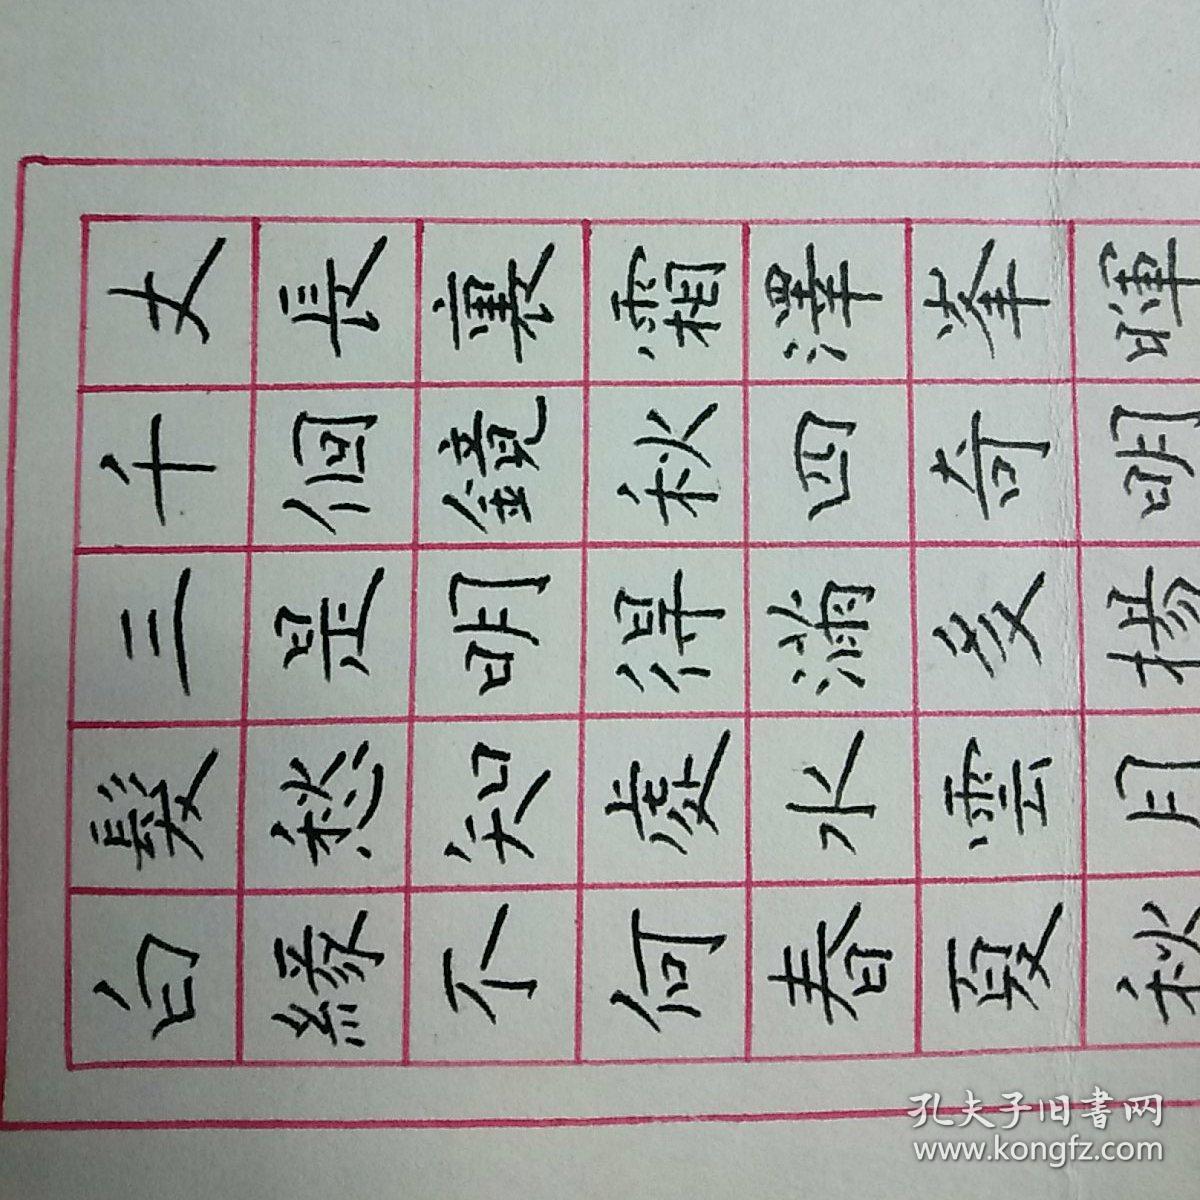 白髮三千丈
緣愁是個長
不知明鏡裏
何處得秋霜
春水滿四澤
夏雲多奇峯
秋月揚明暉
孔夫子旧書网
www.kongfz.com